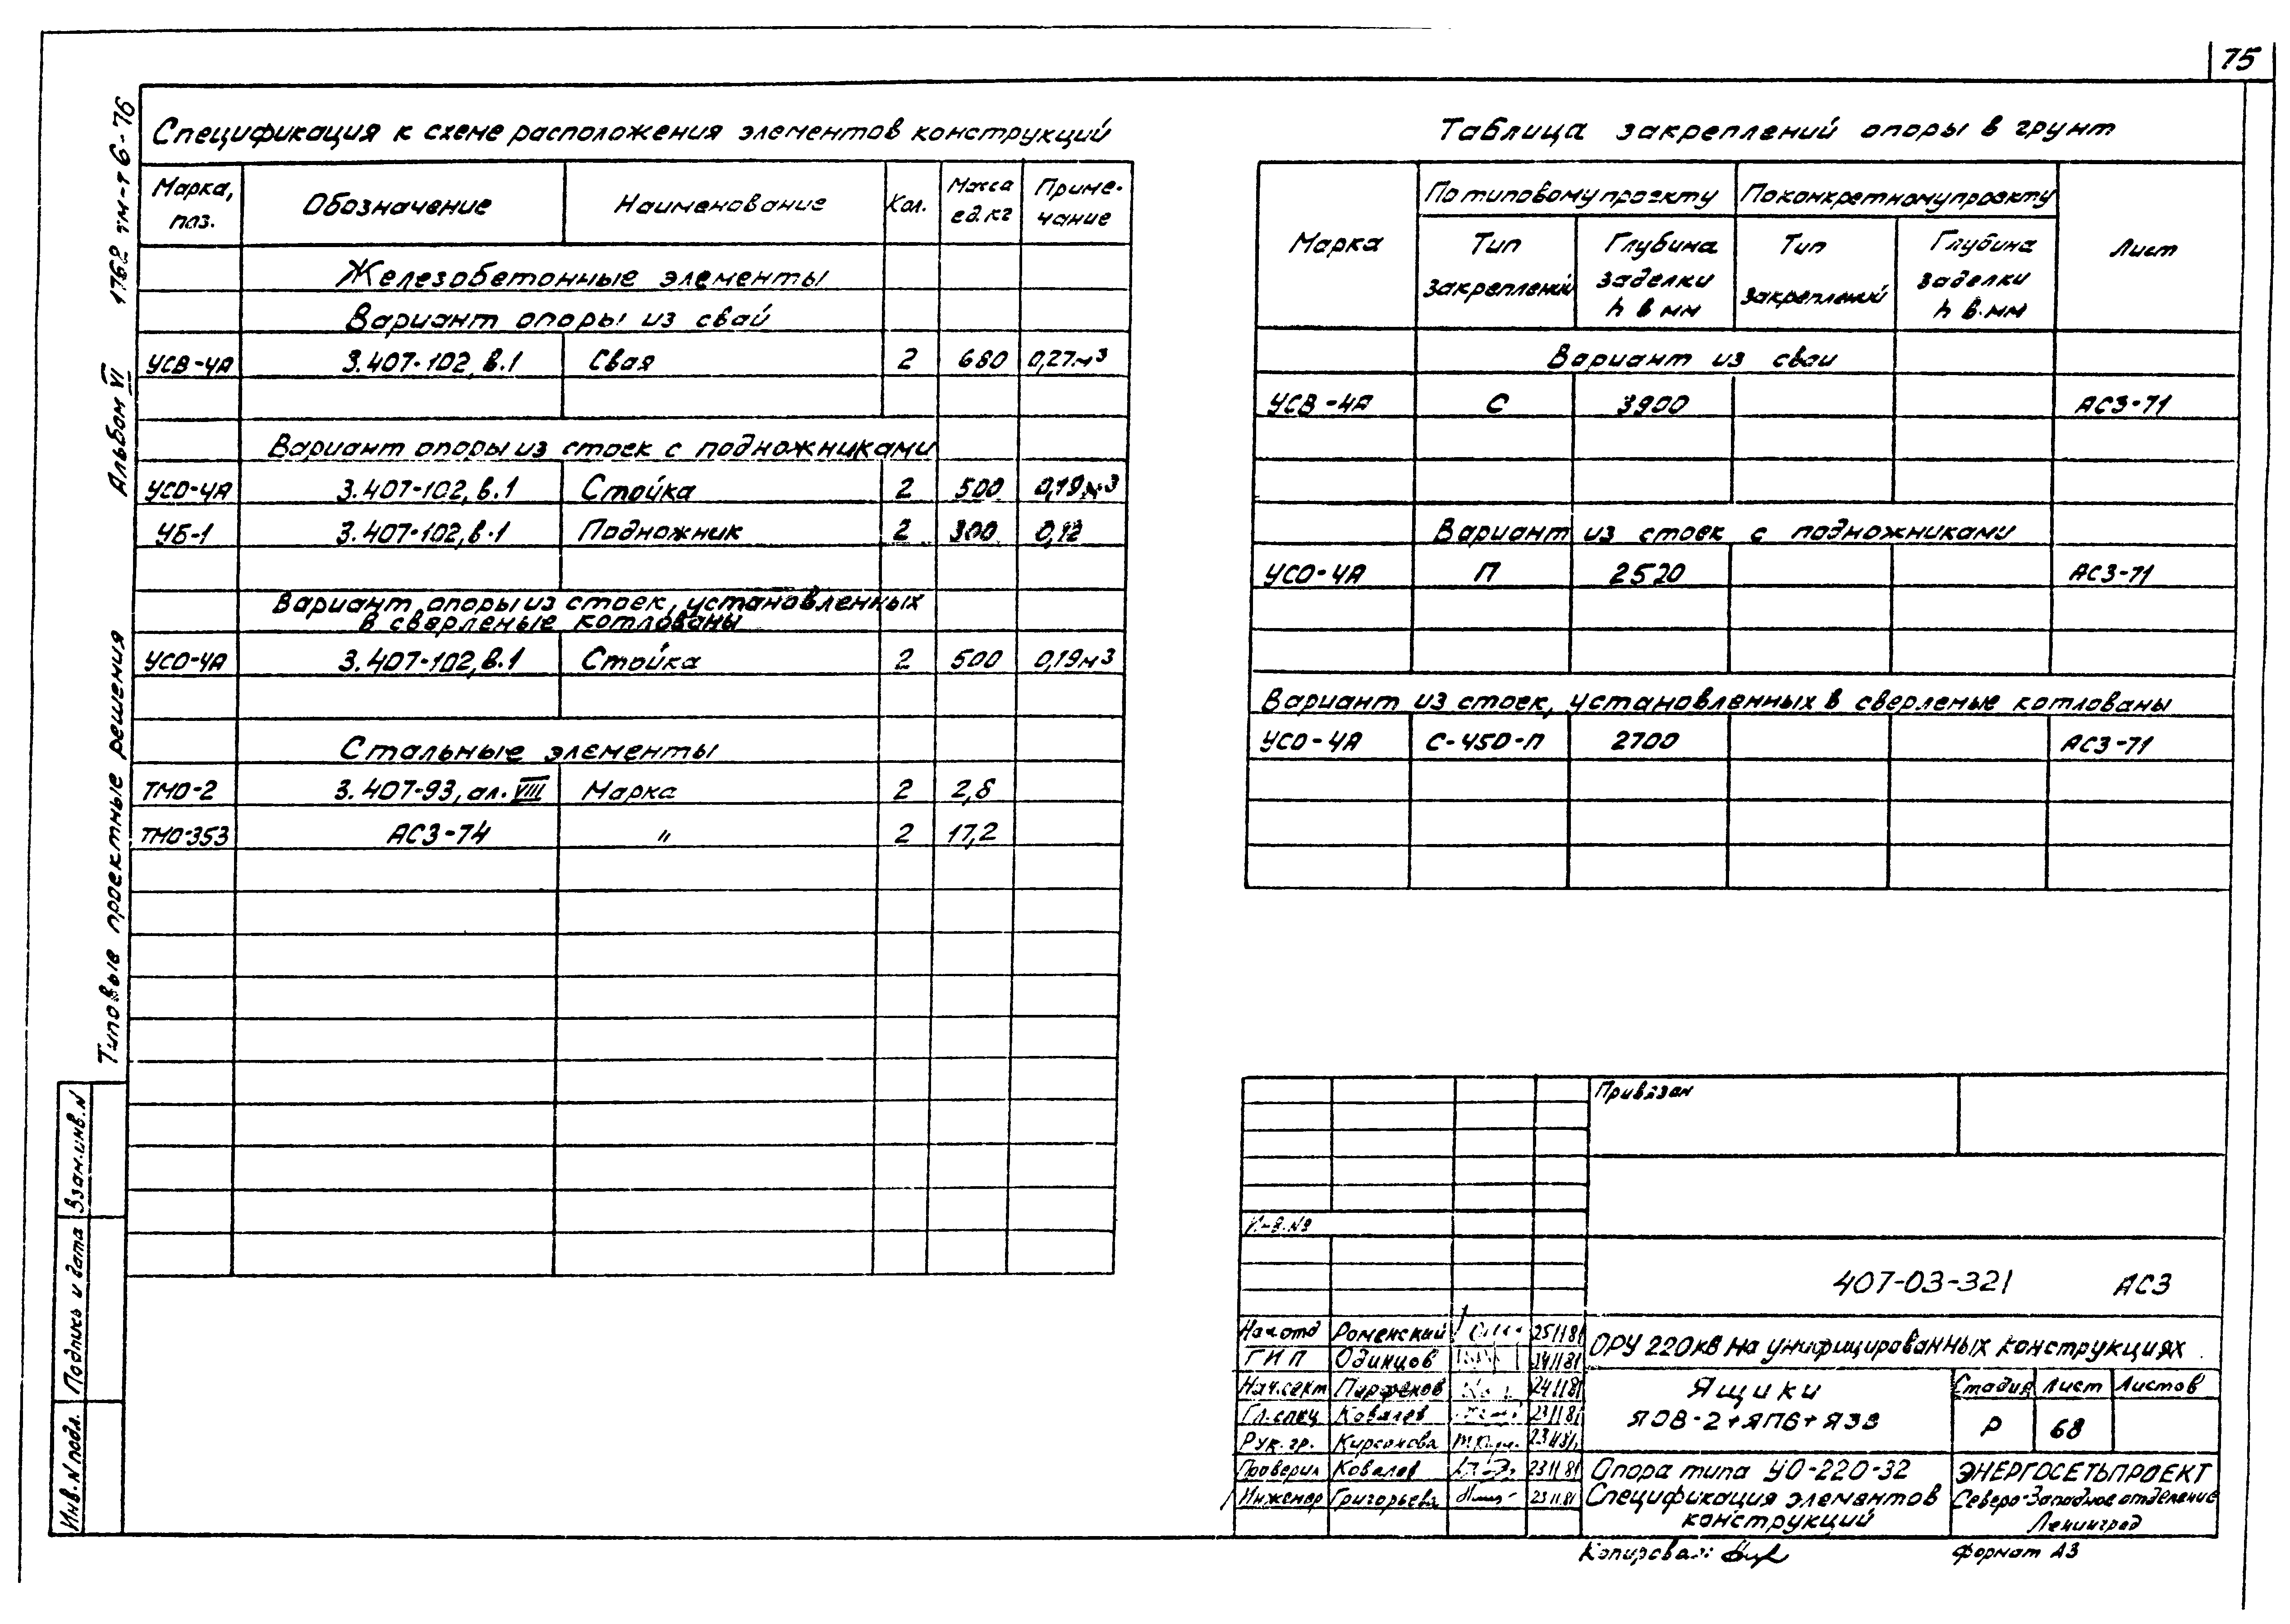 75
1762 тм-т 6-76
Альбом VI
Типовые проектные решения
Спецификация к схеме расположения элементов конструкций
Марка, поз. Обозначение Наименование Кол. Масса ед. кг Приме-чание
Железобетонные элементы
Вариант опоры из свай
УСВ-4А 3.407-102, в.1 Свая 2 680 0,27м³
Вариант опоры из стоек с подножниками
УСО-4А 3.407-102, в.1 Стойка 2 500 0,19м³
УБ-1 3.407-102, в.1 Подножник 2 300 0,12
Вариант опоры из стоек, установленных
в сверленые котлованы
УСО-4А 3.407-102, в.1 Стойка 2 500 0,19м³
Стальные элементы
ТМО-2 3.407-93, ал. VIII Марка 2 2,8
ТМО-353 АС3-74 " 2 17,2
Таблица закреплений опоры в грунт
Марка По типовому проекту По конкретному проекту Лист
Тип закреплений Глубина заделки h в мм Тип закреплений Глубина заделки h в мм
Вариант из сваи
УСВ-4А С 3900 АС3-71
Вариант из стоек с подножниками
УСО-4А П 2520 АС3-71
Вариант из стоек, установленных в сверленые котлованы
УСО-4А С-450-П 2700 АС3-71
Привязан
Инв.№
407-03-321 АС3
Нач.отд Роменский 25.11.81
ГИП Одинцов 24.11.81
Нач.сект Парфенов 24.11.81
Гл.спец Ковалев 23.11.81
Рук.гр. Кирсанова 23.11.81
Проверил Ковалев 23.11.81
Инженер Григорьева 23.11.81
ОРУ 220кВ на унифицированных конструкциях
Ящики
ЯОВ-2+ЯПВ+ЯЗВ
Стадия Лист Листов
Р 68
Опора типа УО-220-32
Спецификация элементов
конструкций
ЭНЕРГОСЕТЬПРОЕКТ
Северо-Западное отделение
Ленинград
Копировал:
Формат А3
Взам.инв.N
Подпись и дата
Инв.N подл.